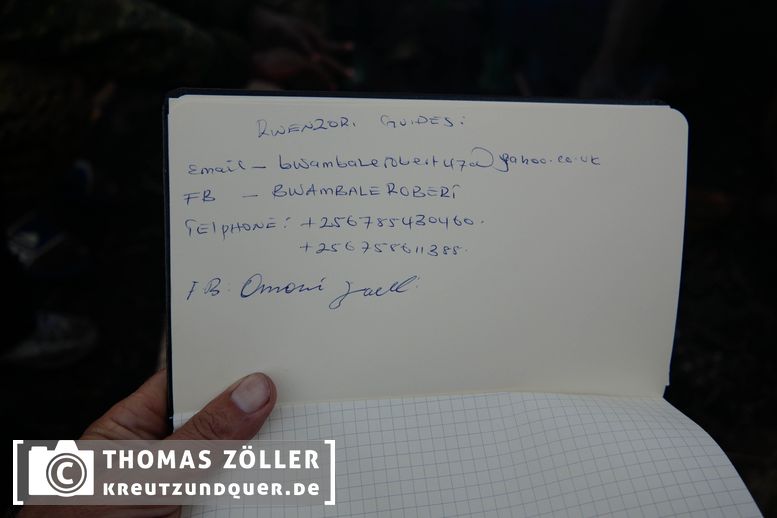 RWENZORI GUIDES:
email - bwambalerobert47@yahoo.co.uk
FB - BWAMBALE ROBERT
TELPHONE: +256785430460.
+256758611388.
FB: Omoni
[© THOMAS ZÖLLER
KREUTZUNDQUER.DE]